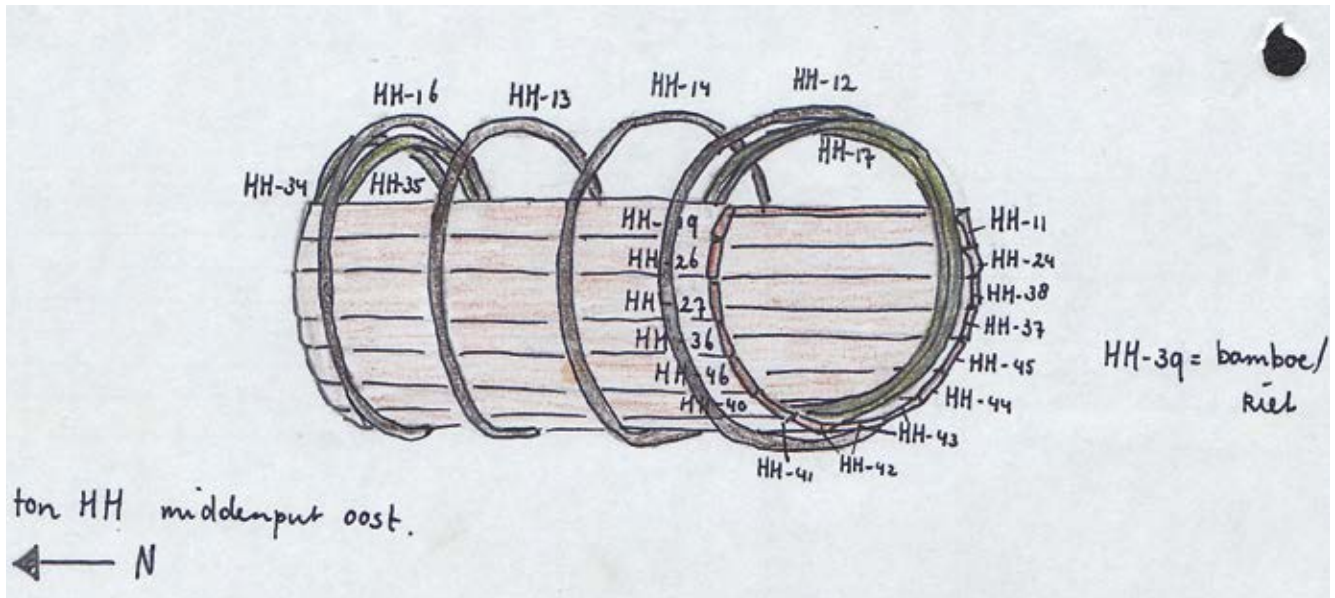 HH-16
HH-13
HH-14
HH-12
HH-17
HH-34
HH-35
HH-11
HH-26
HH-24
HH-27
HH-38
HH-36
HH-37
HH-46
HH-45
HH-40
HH-44
HH-43
HH-41
HH-42
HH-39= bamboe/
riet
ton HH middenput oost.
N